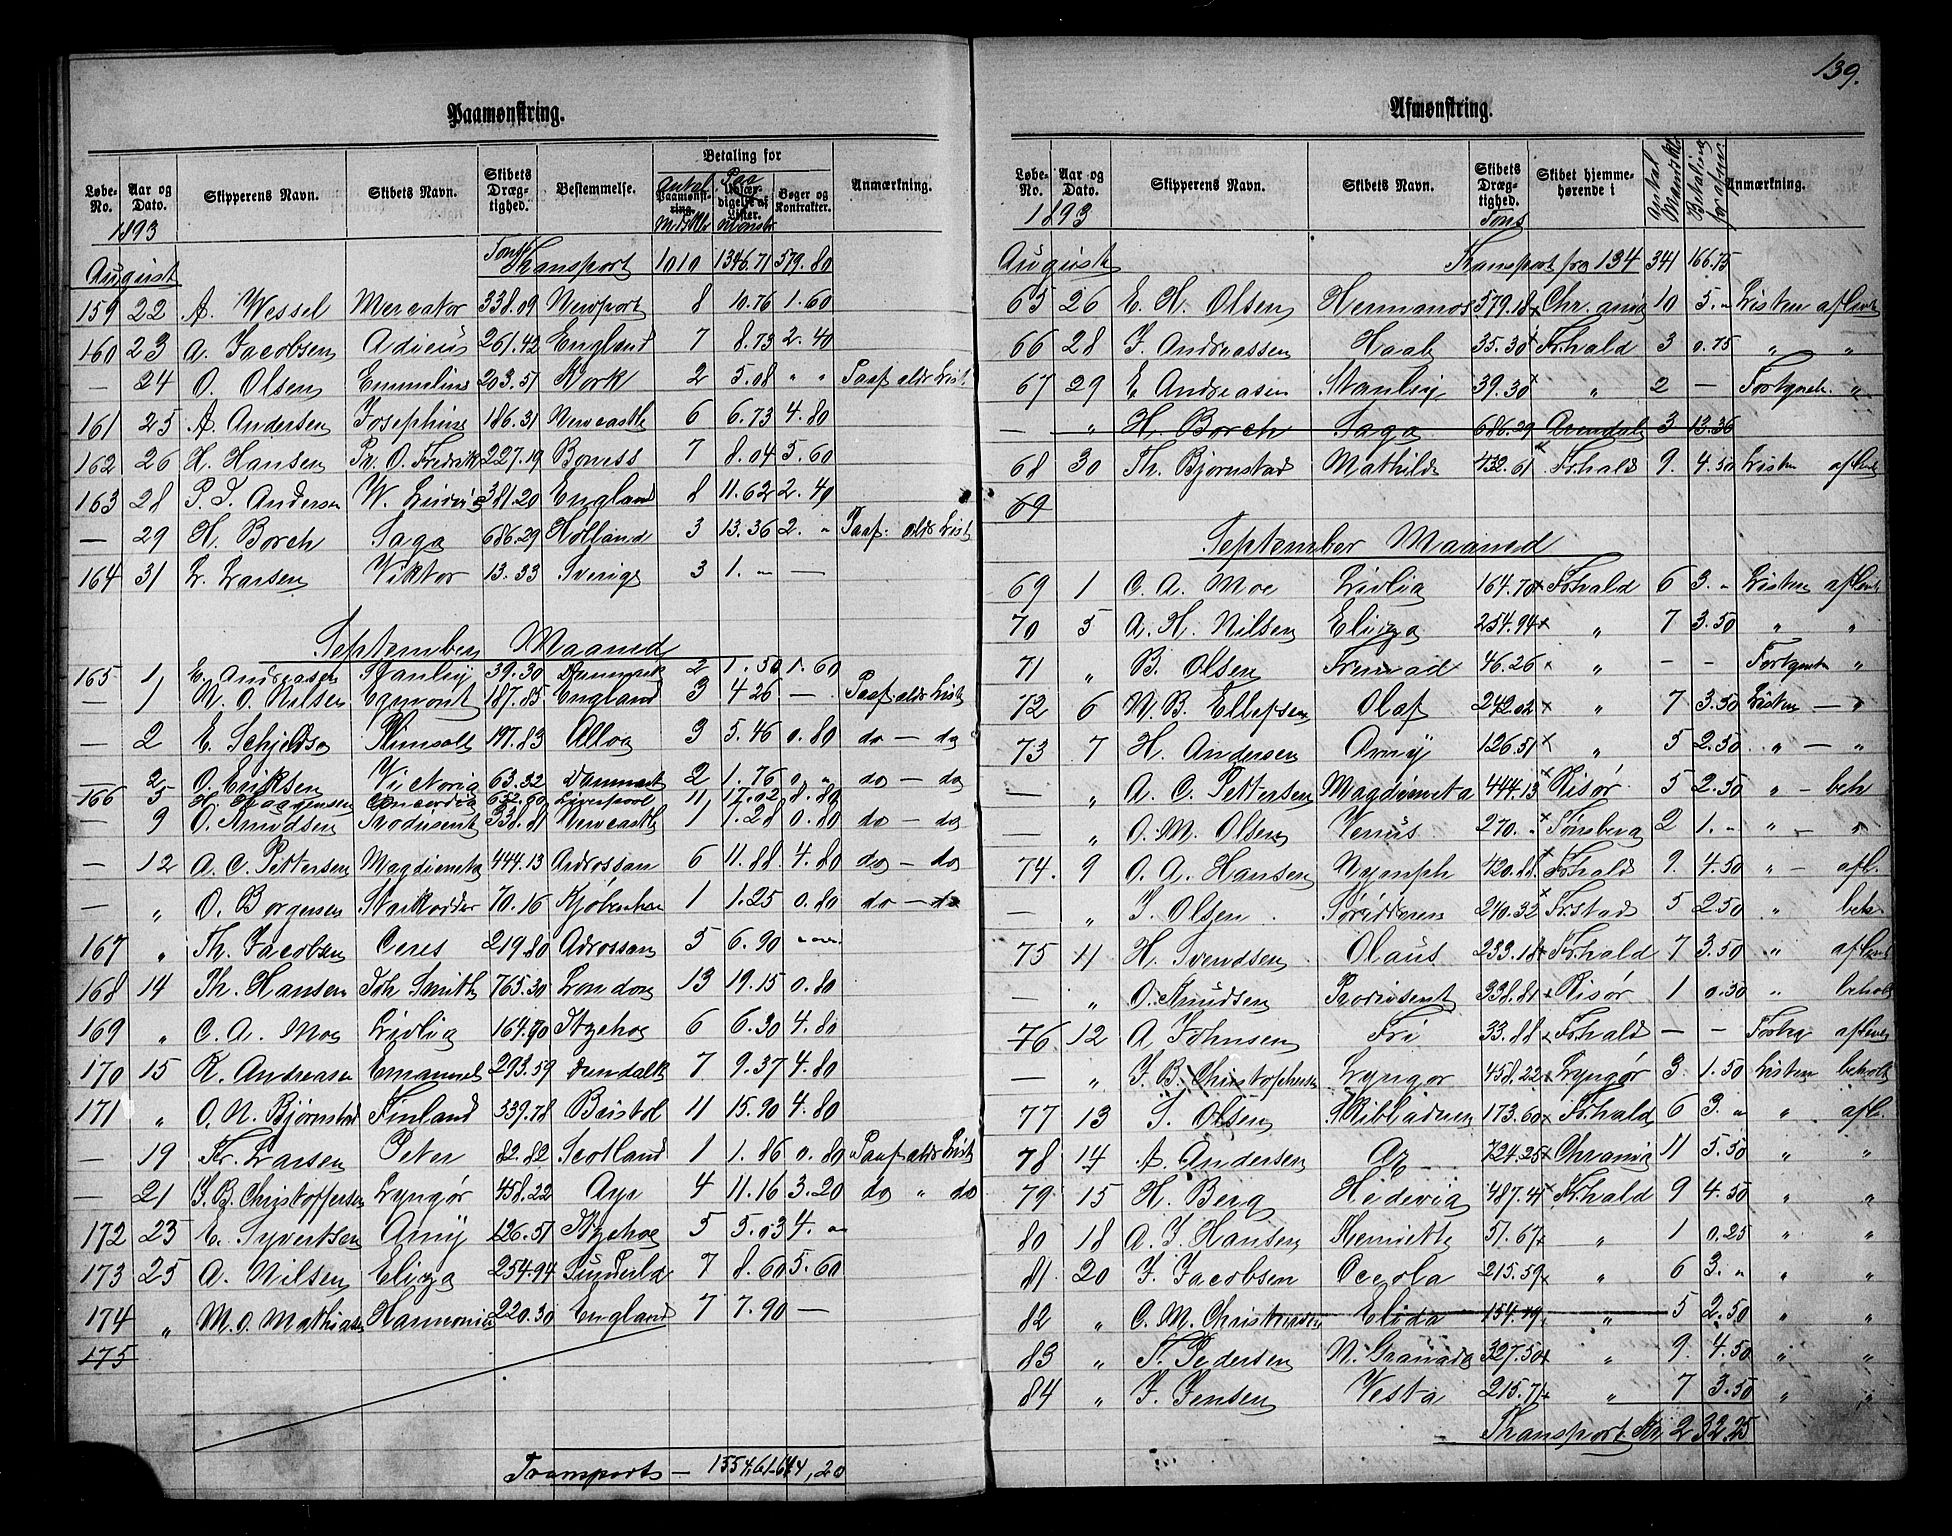 139.
Paamønstring.
Løbe-No. Aar og Dato. Skipperens Navn. Skibets Navn. Skibets Dræg-tighed. Bestemmelse. Betaling for Bøger og Kontrakter. Anmærkning.
1893
August Tons Transport 1010 1346.71 579.80
159 22 A. Wessel Mercator 338.09 Newport 8 10.76 1.60
160 23 A. Jacobsen Adieus 261.42 England 7 8.73 2.40
— 24 O. Olsen Emmeline 203.51 Kork 2 5.08 " " Paaf. aldr List
161 25 A. Andersen Josephine 186.31 Newcastle 6 6.73 4.80
162 26 H. Hansen Pr. O. Fredrik 227.19 Boness 7 8.04 5.60
163 28 P. I. Andersen W. Ludvig 381.20 England 8 11.62 2.40
— 29 H. Borch Saga 686.29 Holland 3 13.36 2. " Paaf. aldr List
164 31 L. Larsen Viktor 13.33 Sverige 3 1. " —
September Maaned
165 1 E. Andreasen Stanley 39.30 Danmark 2 1.50 1.60
— 1 N. O. Nilsen Egmont 187.85 England 3 4.26 — Paaf. aldr List
— 2 E. Schjeldso Plimsoll 197.83 Alloa 3 5.46 0.80 do — do
— 2 O. Eriksen Victoria 63.32 Danmark 2 1.76 0. "
166 5 H. Haagensen Concordia 652.60 Liverpool 11 17.02 8.80
— 9 O. Knudsen Prodrisent 338.81 Newcastle 1 1.28 0.80 do — do
— 12 A. C. Pettersen Magdimeta 444.13 Ardrossan 6 11.88 4.80 do — do
— " O. Borgersen Starkodder 70.16 Kjøbenhavn 1 1.25 0.80 do — do
167 " Th. Jacobsen Ceres 219.80 Adrossan 5 6.90
168 14 Th. Hansen Joh Smith 765.30 London 13 19.15 0.80
169 " C. A. Moe Lidlia 164.70 Itzehoe 6 6.30 4.80
170 15 K. Andreasen Emanuel 293.59 Dundalk 7 9.37 4.80
171 " O. N. Bjørnstad Finland 539.78 Bristol 11 15.90 4.80
— 19 Fr. Larsen Peter 82.82 Scotland 1 1.86 0.80 Paaf aldr List
— 21 I. B. Christoffersen Lyngør 458.22 Ayr 4 11.16 3.20 do " do
172 23 E. Syvertsen Amy 126.51 Itzehoe 5 5.03 4. "
173 25 A. Nilsen Eliza 254.94 Sunderld 7 8.60 5.60
174 " M. O. Mathiasen Harmonie 220.30 England 7 7.90 —
175
Transport — 1554,61 644,20
Afmønstring.
Løbe-No. Aar og Dato. Skipperens Navn. Skibets Navn. Skibets Dræg-tighed. Skibet hjemme-hørende i Antal Mandskb Betaling for afmø. Anmærkning.
1893 Tons
August Transport fra 134 341 166.75
65 26 E. H. Olsen Hermanos 579.18 Chr.ania 10 5. " Listen aflevt
66 28 J. Andreassen Haab 35.30 Fr.hald 3 0.75 " "
67 29 E. Andreasen Stanley 39.30 " 2 — "
— " H. Borch Saga 686.29 Arendal 3 13.36
68 30 Th. Bjørnstad Mathilde 432.61 Fr.hald 9. 4.50 Listen aflevt
69
September Maaned
69 1 C. A. Moe Lidlia 164.70 Fr.hald 6 3. " Listen aflevt
70 5 A. H. Nilsen Eliza 254.94 " 7 3.50 " "
71 " B. Olsen Fremad 46.26 " — — "
72 6 W. B. Ellefsen Olaf 242.02 " 7 3.50 Listen — "
73 7 H. Andersen Amy 126.51 " 5 2.50 " — "
— " A. C. Pettersen Magdimeta 444.13 Risør 5 2.50 " — beh
— " O. M. Olsen Venus 270. " Tønsberg 2 1. " " — "
74. 9 O. A. Hansen Nymph 420.88 Fr.hald 9. 4.50 " — afl.
— " I. Olsen 210.32 Fr.stad 5 2.50 " beh
75 11 H. Svendsen Olaus 233.18 Fr.hald 7 3.50 " aflevt
— " O. Knudsen Prodrisent 338.81 Risør 1 0.30 " behol
76 12 A Johnsen Fri 33.88 Fr.hald — — aflevt
— " I. B. Christophersen Lyngør 458.22 Lyngør 3. 1.50 Listen behol
77 13 S. Olsen Skibladner 173.60 Fr.hald 6 3. " " afl.
78 14 A. Andersen Ar 724.25 Chrania 11 5.50 " "
79 15 H. Berg Hedevig 487.41 Fr.hald 9 4.50 " "
80 18 A. I. Hansen Henriette 51.67 " 1 0.25 "
81. 20 J. Jacobsen Oceola 215.59 " 6 3. " " "
82 " C. M. Christensen Elida 154.49 " 5 2.50 " "
83 " T. Pedersen N. Granada 327.50 " 9. 4.50 " "
84 " J. Jensen Vesta 215.71 " 7 3.50 " "
Transport Kr. 232.25